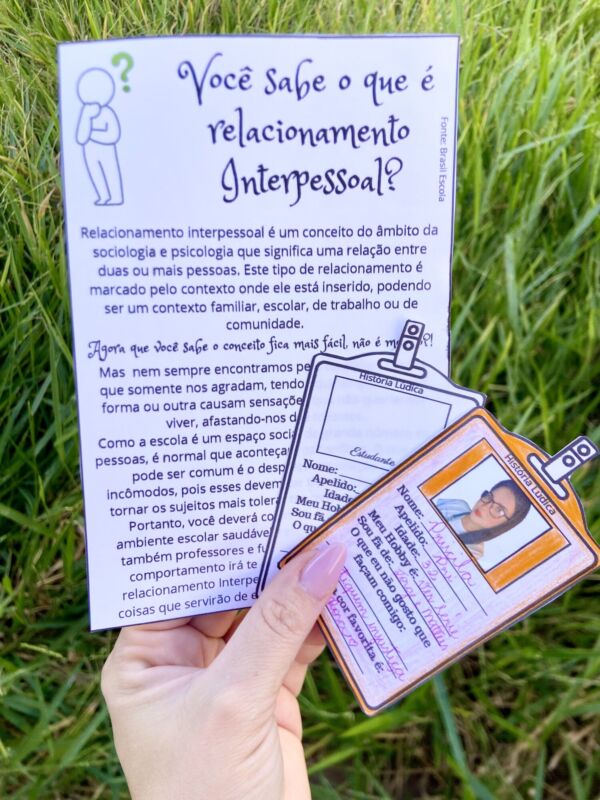 ?
Você sabe o que é
relacionamento
Interpessoal?
Fonte: Brasil Escola
Relacionamento interpessoal é um conceito do âmbito da
sociologia e psicologia que significa uma relação entre
duas ou mais pessoas. Este tipo de relacionamento é
marcado pelo contexto onde ele está inserido, podendo
ser um contexto familiar, escolar, de trabalho ou de
comunidade.
Agora que você sabe o conceito fica mais fácil, não é
Mas nem sempre encontramos
que somente nos agradam, tendo
forma ou outra causam
viver, afastando-nos
Como a escola é um espaço
pessoas, é normal que
pode ser comum é o
incômodos, pois esses devem
tornar os sujeitos mais
Portanto, você deverá
ambiente escolar
também professores e
comportamento irá te
relacionamento
coisas que servirão de
História Lúdica
Estudante
Nome:
Apelido:
Idade:
Meu
Sou fã
O
História Lúdica
Nome: Angela
Apelido:
Idade: 32
Meu Hobby é:
Sou fã de:
O que eu não gosto que
façam comigo:
cor favorita é: